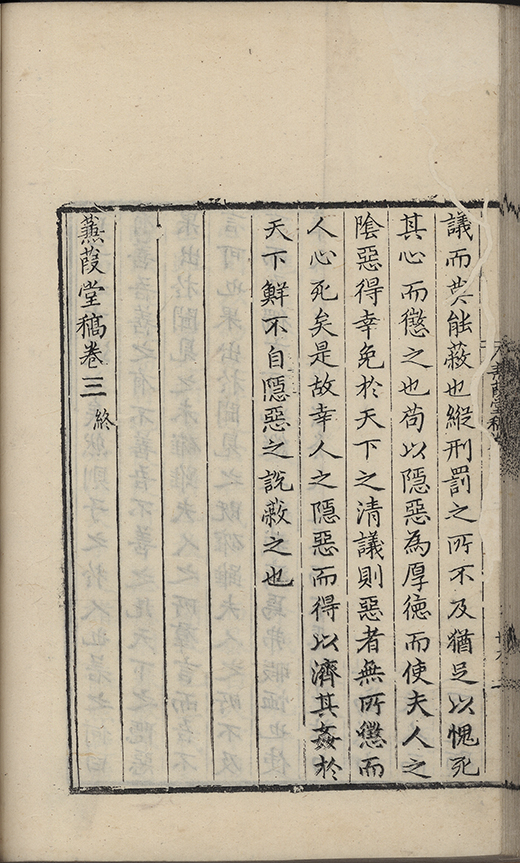 議而莫能蔽也縱刑罰之所不及猶足以愧死
其心而懲之也苟以隱惡為厚德而使夫人之
陰惡得幸免於天下之清議則惡者無所懲而
人心死矣是故幸人之隱惡而得以濟其姦於
天下鮮不自隱惡之説蔽之也
蒹葭堂稿卷三 終